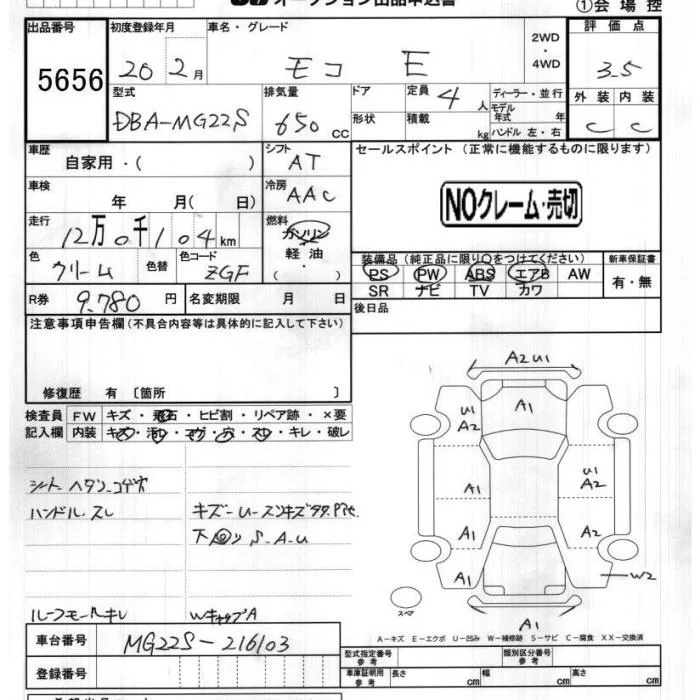 オークション出品申込書
①会場控
出品番号 5656
初度登録年月 20 2月
車名・グレード モコ E
2WD・4WD
評価点 3.5
外装 C 内装 C
型式 DBA-MG22S
排気量 650 CC
ドア形状
定員 4 人
積載 kg
ディーラー・並行
モデル年式 年
ハンドル 左・右
車歴 自家用・( )
シフト AT
セールスポイント (正常に機能するものに限ります)
NOクレーム・売切
車検 年 月( 日)
冷房 AAC
走行 12万0千104km
燃料 ガソリン 軽油 ( )
色 クリーム 色替 色コード ZGF
装備品 (純正品に限り○をつけてください)
新車保証書
PS PW ABS エアB AW
SR ナビ TV カワ
有・無
R券 9,780円
名変期限 月 日
後日品
注意事項申告欄 (不具合内容等は具体的に記入して下さい)
修復歴 有 〔箇所 〕
検査員記入欄
FW キズ・飛石・ヒビ割・リペア跡・×要
内装 キズ・汚レ・コゲ・穴・スレ・キレ・破レ
ハンドル.スレ
ルーフモールキレ
WキャップA
A2 U1
A1
U1 A2
A1
U1 A2
A1 A2
A1 W2
スペア
A1
A-キズ E-エクボ U-凹み W-補修跡 S-サビ C-腐食 XX-交換済
車台番号 MG22S-216103
登録番号
型式指定番号 参考
類別区分番号 参考
車庫証明用 参考 長さ cm 幅 cm 高さ cm